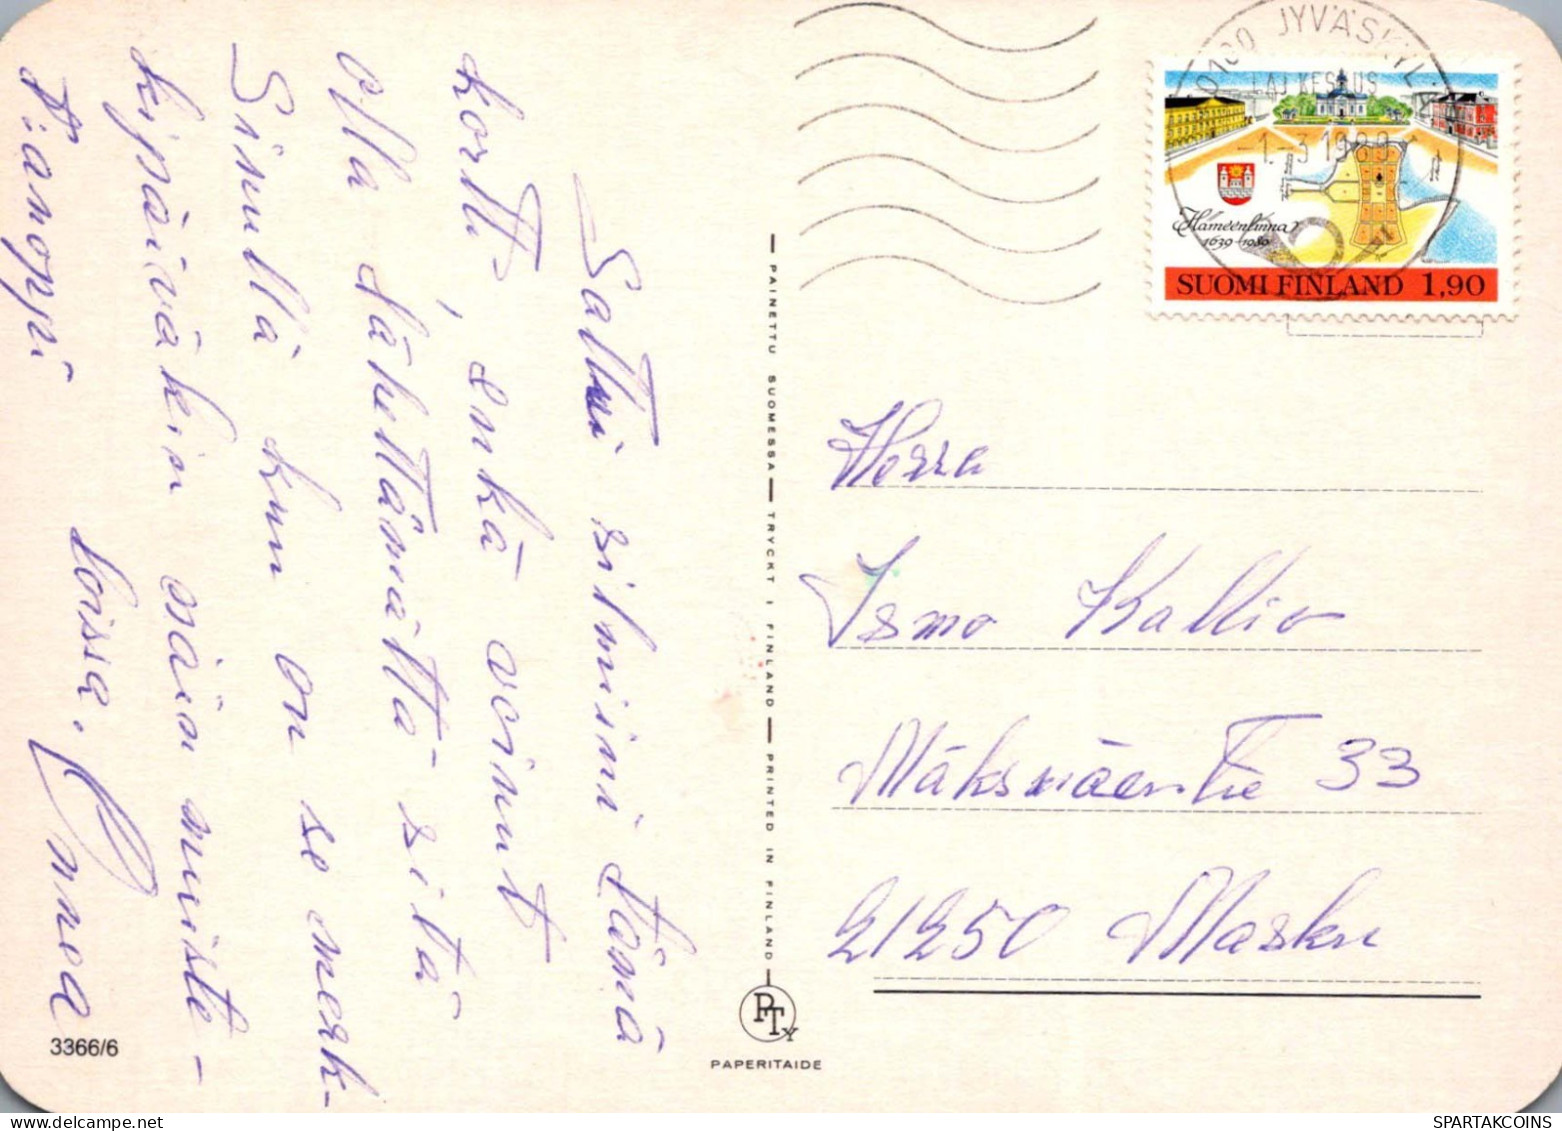 Sattui silmiini tämä
kortti, enkä voinut
olla lähettämättä sitä
Sinulle kun on se merk-
kipäiväkin näin muiste-
loissa.
Pianoppi
Linnea
3366/6
PAINETTU SUOMESSA — TRYCKT I FINLAND — PRINTED IN FINLAND
PTy
PAPERITAIDE
JYVÄSKYLÄ
LAJKESKUS
-1.-3 1989
Hämeenlinna
1639-1989
SUOMI FINLAND 1,90
Herra
Ismo Kallio
Mäksmäentie 33
21250 Masku
SPARTAKCOINS